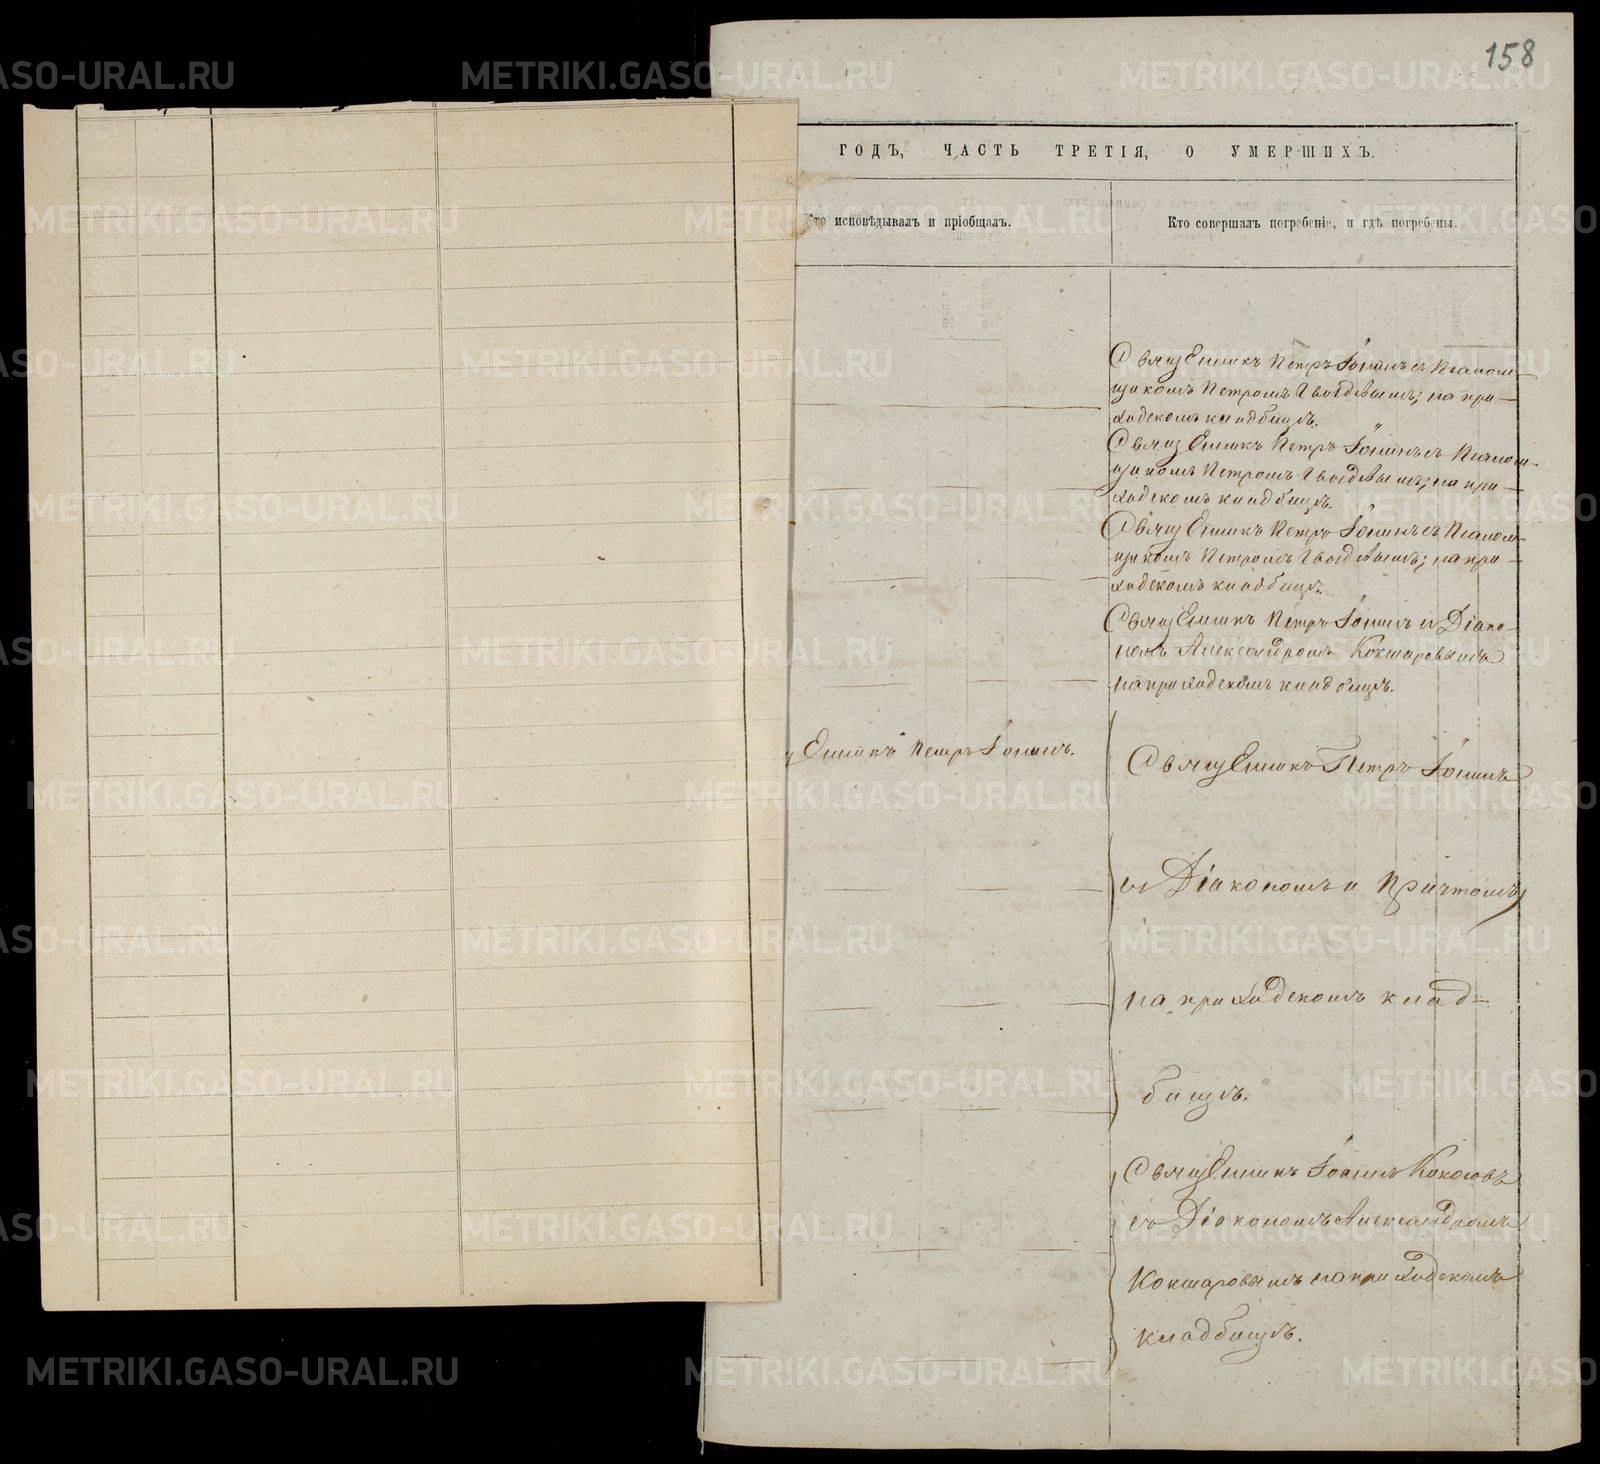 158
ГОДЪ, ЧАСТЬ ТРЕТІЯ, О УМЕРШИХЪ.
Кто исповѣдывалъ и пріобщалъ.
Кто совершалъ погребеніе, и гдѣ погребены.
Священникъ Петръ Іонинъ съ Псалом-
щикомъ Петромъ Гвоздевымъ; на при-
ходскомъ кладбищѣ.
Священникъ Петръ Іонинъ съ Псалом-
щикомъ Петромъ Гвоздевымъ; на при-
ходскомъ кладбищѣ.
Священникъ Петръ Іонинъ съ Псалом-
щикомъ Петромъ Гвоздевымъ; на при-
ходскомъ кладбищѣ.
Священникъ Петръ Іонинъ съ Діако-
номъ Александромъ Кокшаровымъ
на приходскомъ кладбищѣ.
щенникъ Петръ Іонинъ.
Священникъ Петръ Іонинъ
съ Діакономъ и Причтомъ
на приходскомъ клад-
бищѣ.
Священникъ Іоаннъ Кокосовъ
съ Діакономъ Александромъ
Кокшаровымъ на приходскомъ
кладбищѣ.
METRIKI.GASO-URAL.RU